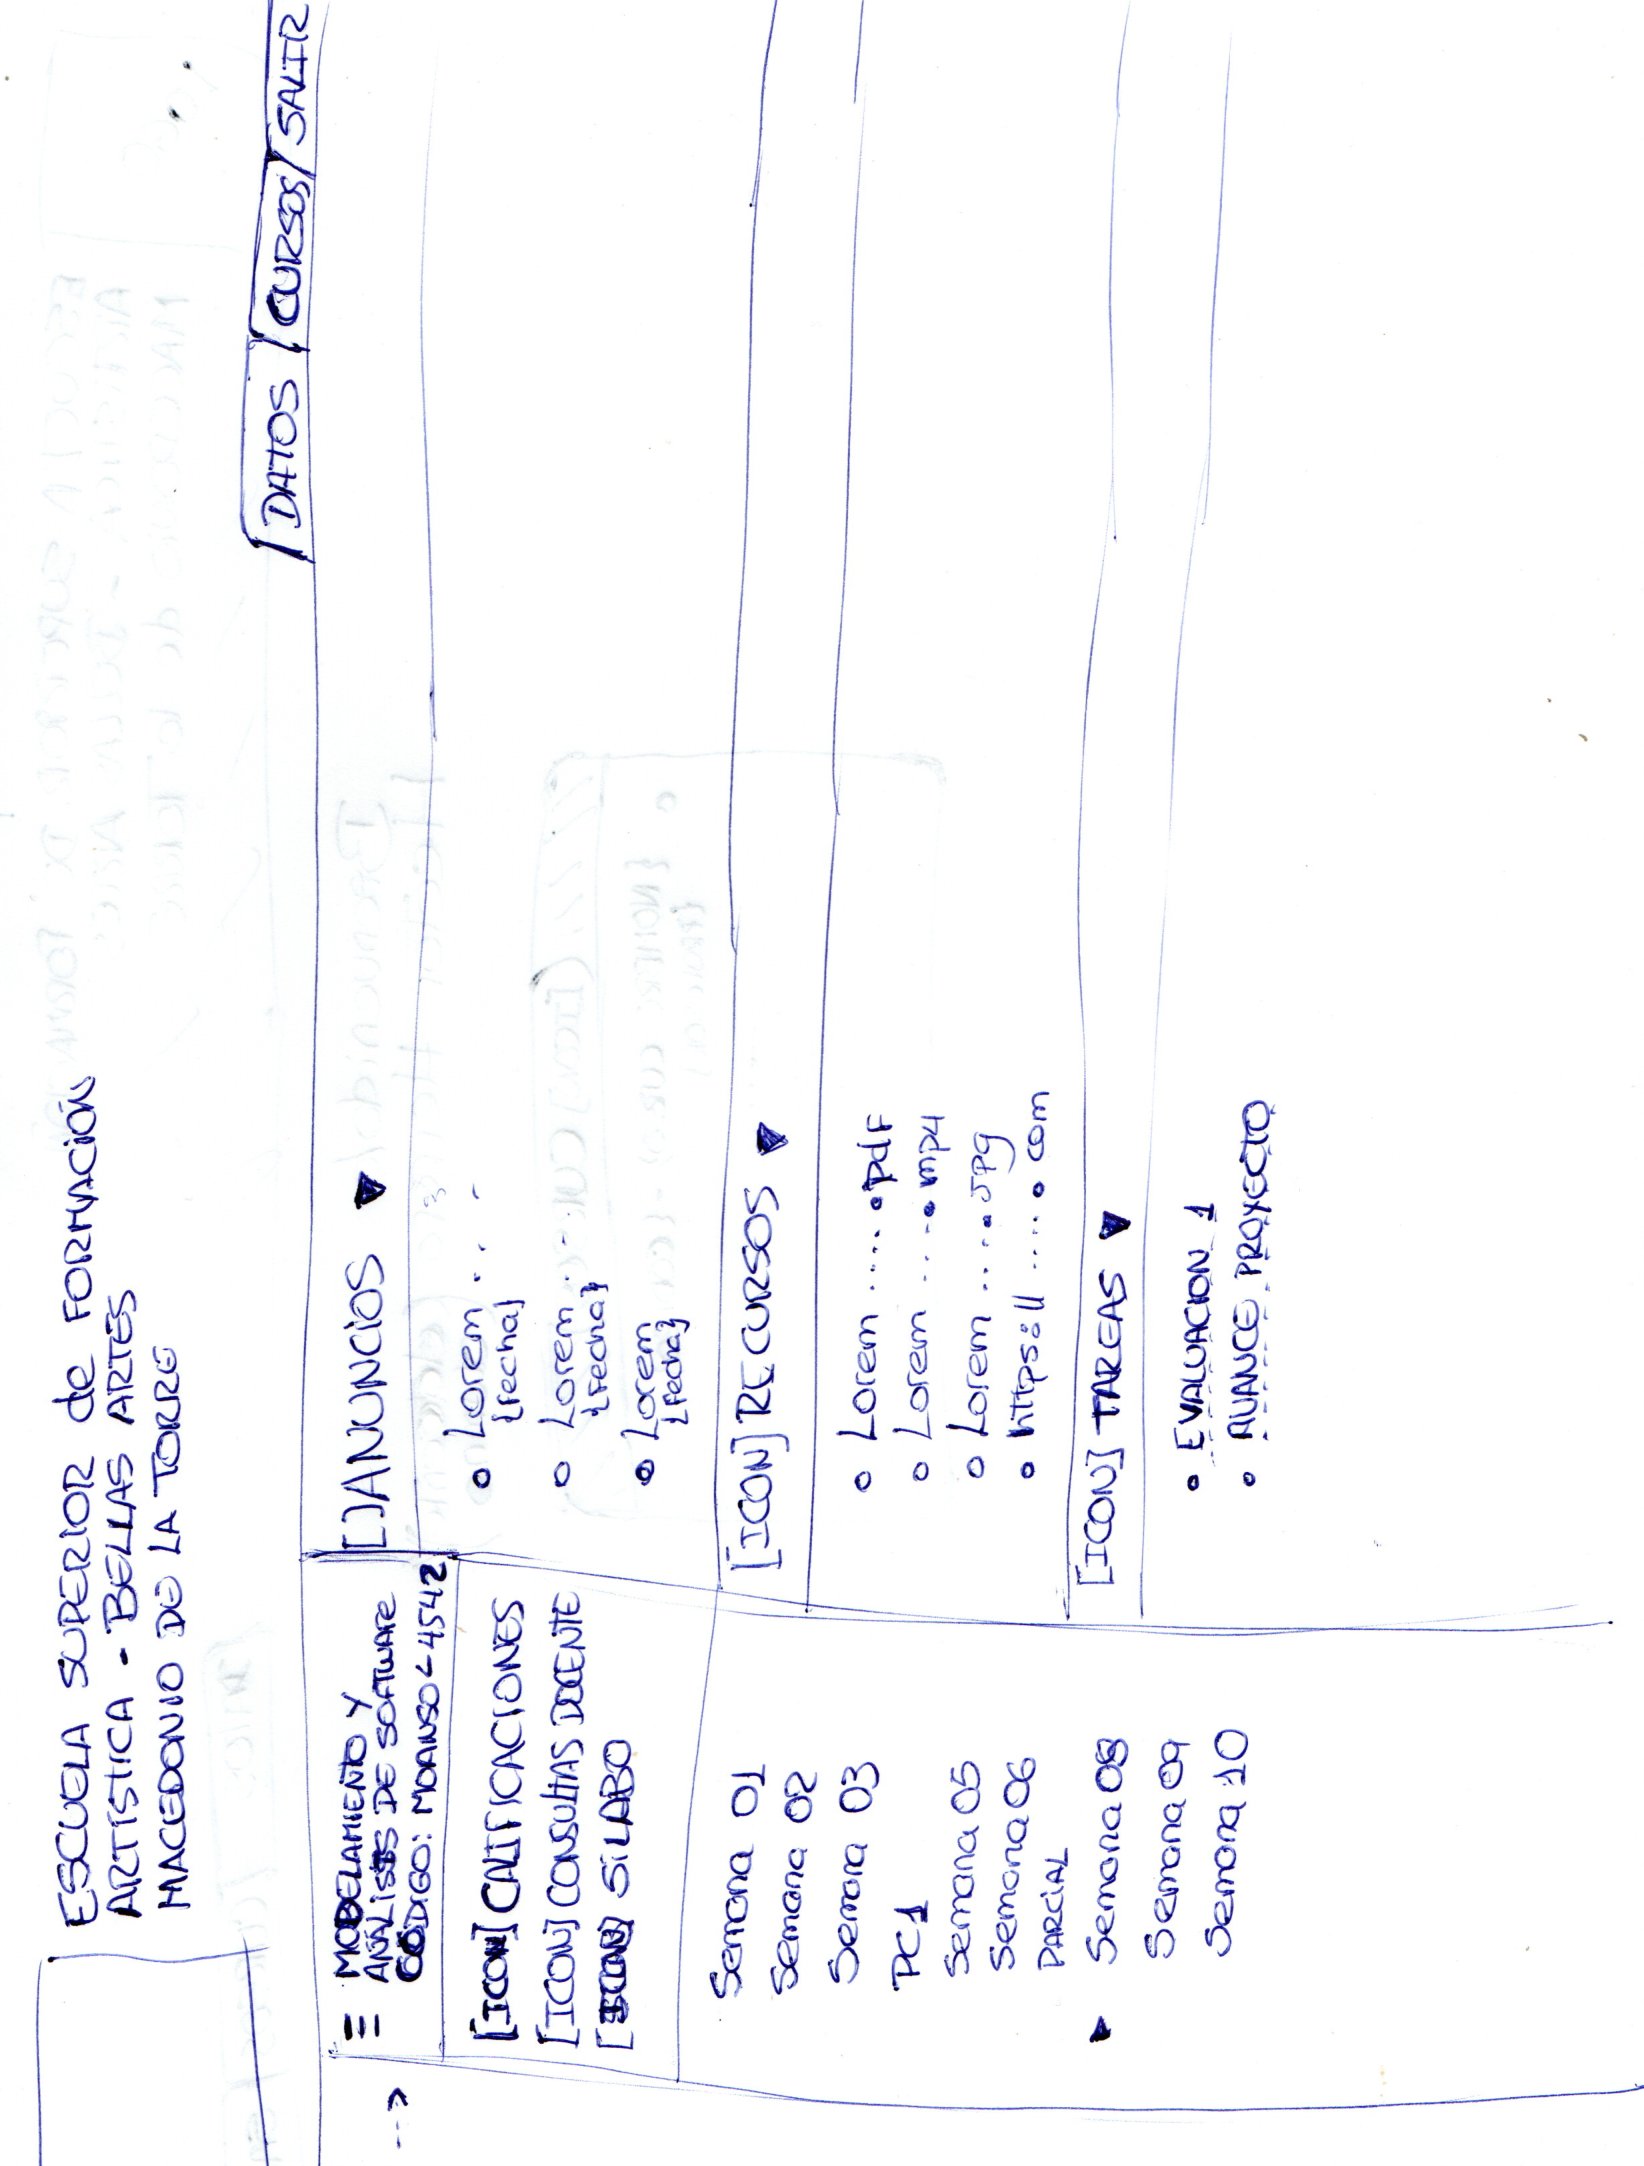 ESCUELA SUPERIOR de FORMACIÓN
ARTÍSTICA - BELLAS ARTES
MACEDONIO DE LA TORRE
DATOS
CURSOS
SALIR
MODELAMIENTO Y
ANÁLISIS DE SOFTWARE
CÓDIGO: MOANSO-4542
[ICON] CALIFICACIONES
[ICON] CONSULTAS DOCENTE
[ICON] SíLABO
Semana 01
Semana 02
Semana 03
PC1
Semana 05
Semana 06
PARCIAL
Semana 08
Semana 09
Semana 10
[ ] ANUNCIOS
Lorem . . -
{fecha}
Lorem . - .
{fecha}
Lorem
{fecha}
[ICON] RECURSOS
Lorem .....pdf
Lorem .....mp4
Lorem .....JPg
https:// .....com
[ICON] TAREAS
EVALUACION 1
AVANCE PROYECTO